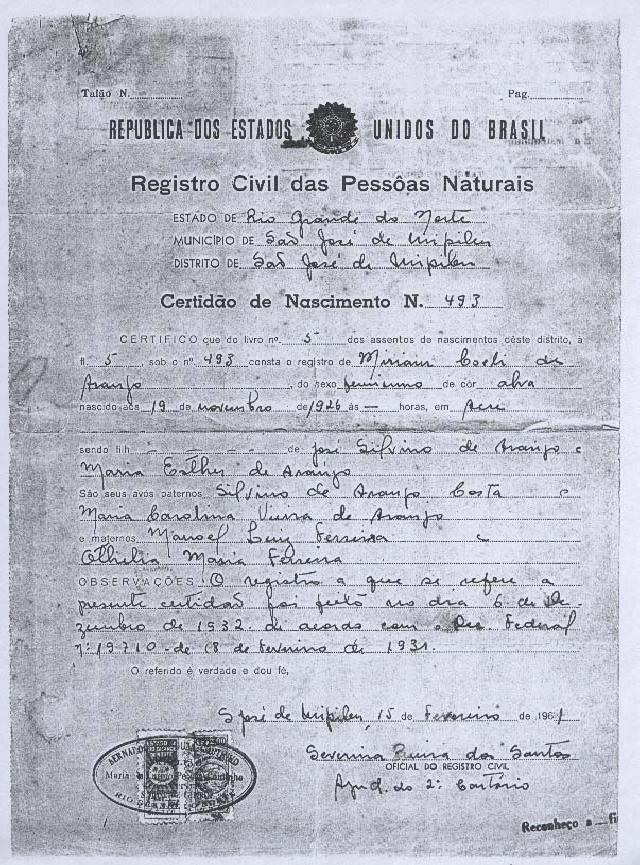 Talão N.
Pag.
REPUBLICA DOS ESTADOS UNIDOS DO BRASIL
Registro Civil das Pessôas Naturais
ESTADO DE Rio Grande do Norte
MUNICÍPIO DE São José de Mipibu
DISTRITO DE São José de Mipibu
Certidão de Nascimento N. 493
CERTIFICO que do livro nº. 5 dos assentos de nascimentos dêste distrito, à
fl 5, sob o nº. 493 consta o registro de Miriam Coeli de
Araujo, do sexo feminino de côr alva
nascido aos 19 de novembro de 1926 às — horas, em
sendo filh - - - - de José Silvino de Araujo e
Maria Esther de Araujo
São seus avós paternos Silvino de Araujo Costa e
Maria Carolina Vieira de Araujo
e maternos Manoel Luiz Ferreira e
Othilia Maria Ferreira
OBSERVAÇÕES: O registro a que se refere a
presente certidão foi feito no dia 6 de De-
zembro de 1932 de acordo com o Dec Federal
nº: 19.710 - de 18 de Fevereiro de 1931.
O referido é verdade e dou fé,
S José de Mipibu, 15 de Fevereiro de 1961
Severina dos Santos
OFICIAL DO REGISTRO CIVIL
do 2º Cartório
Maria
RIO
Reconheço a fi